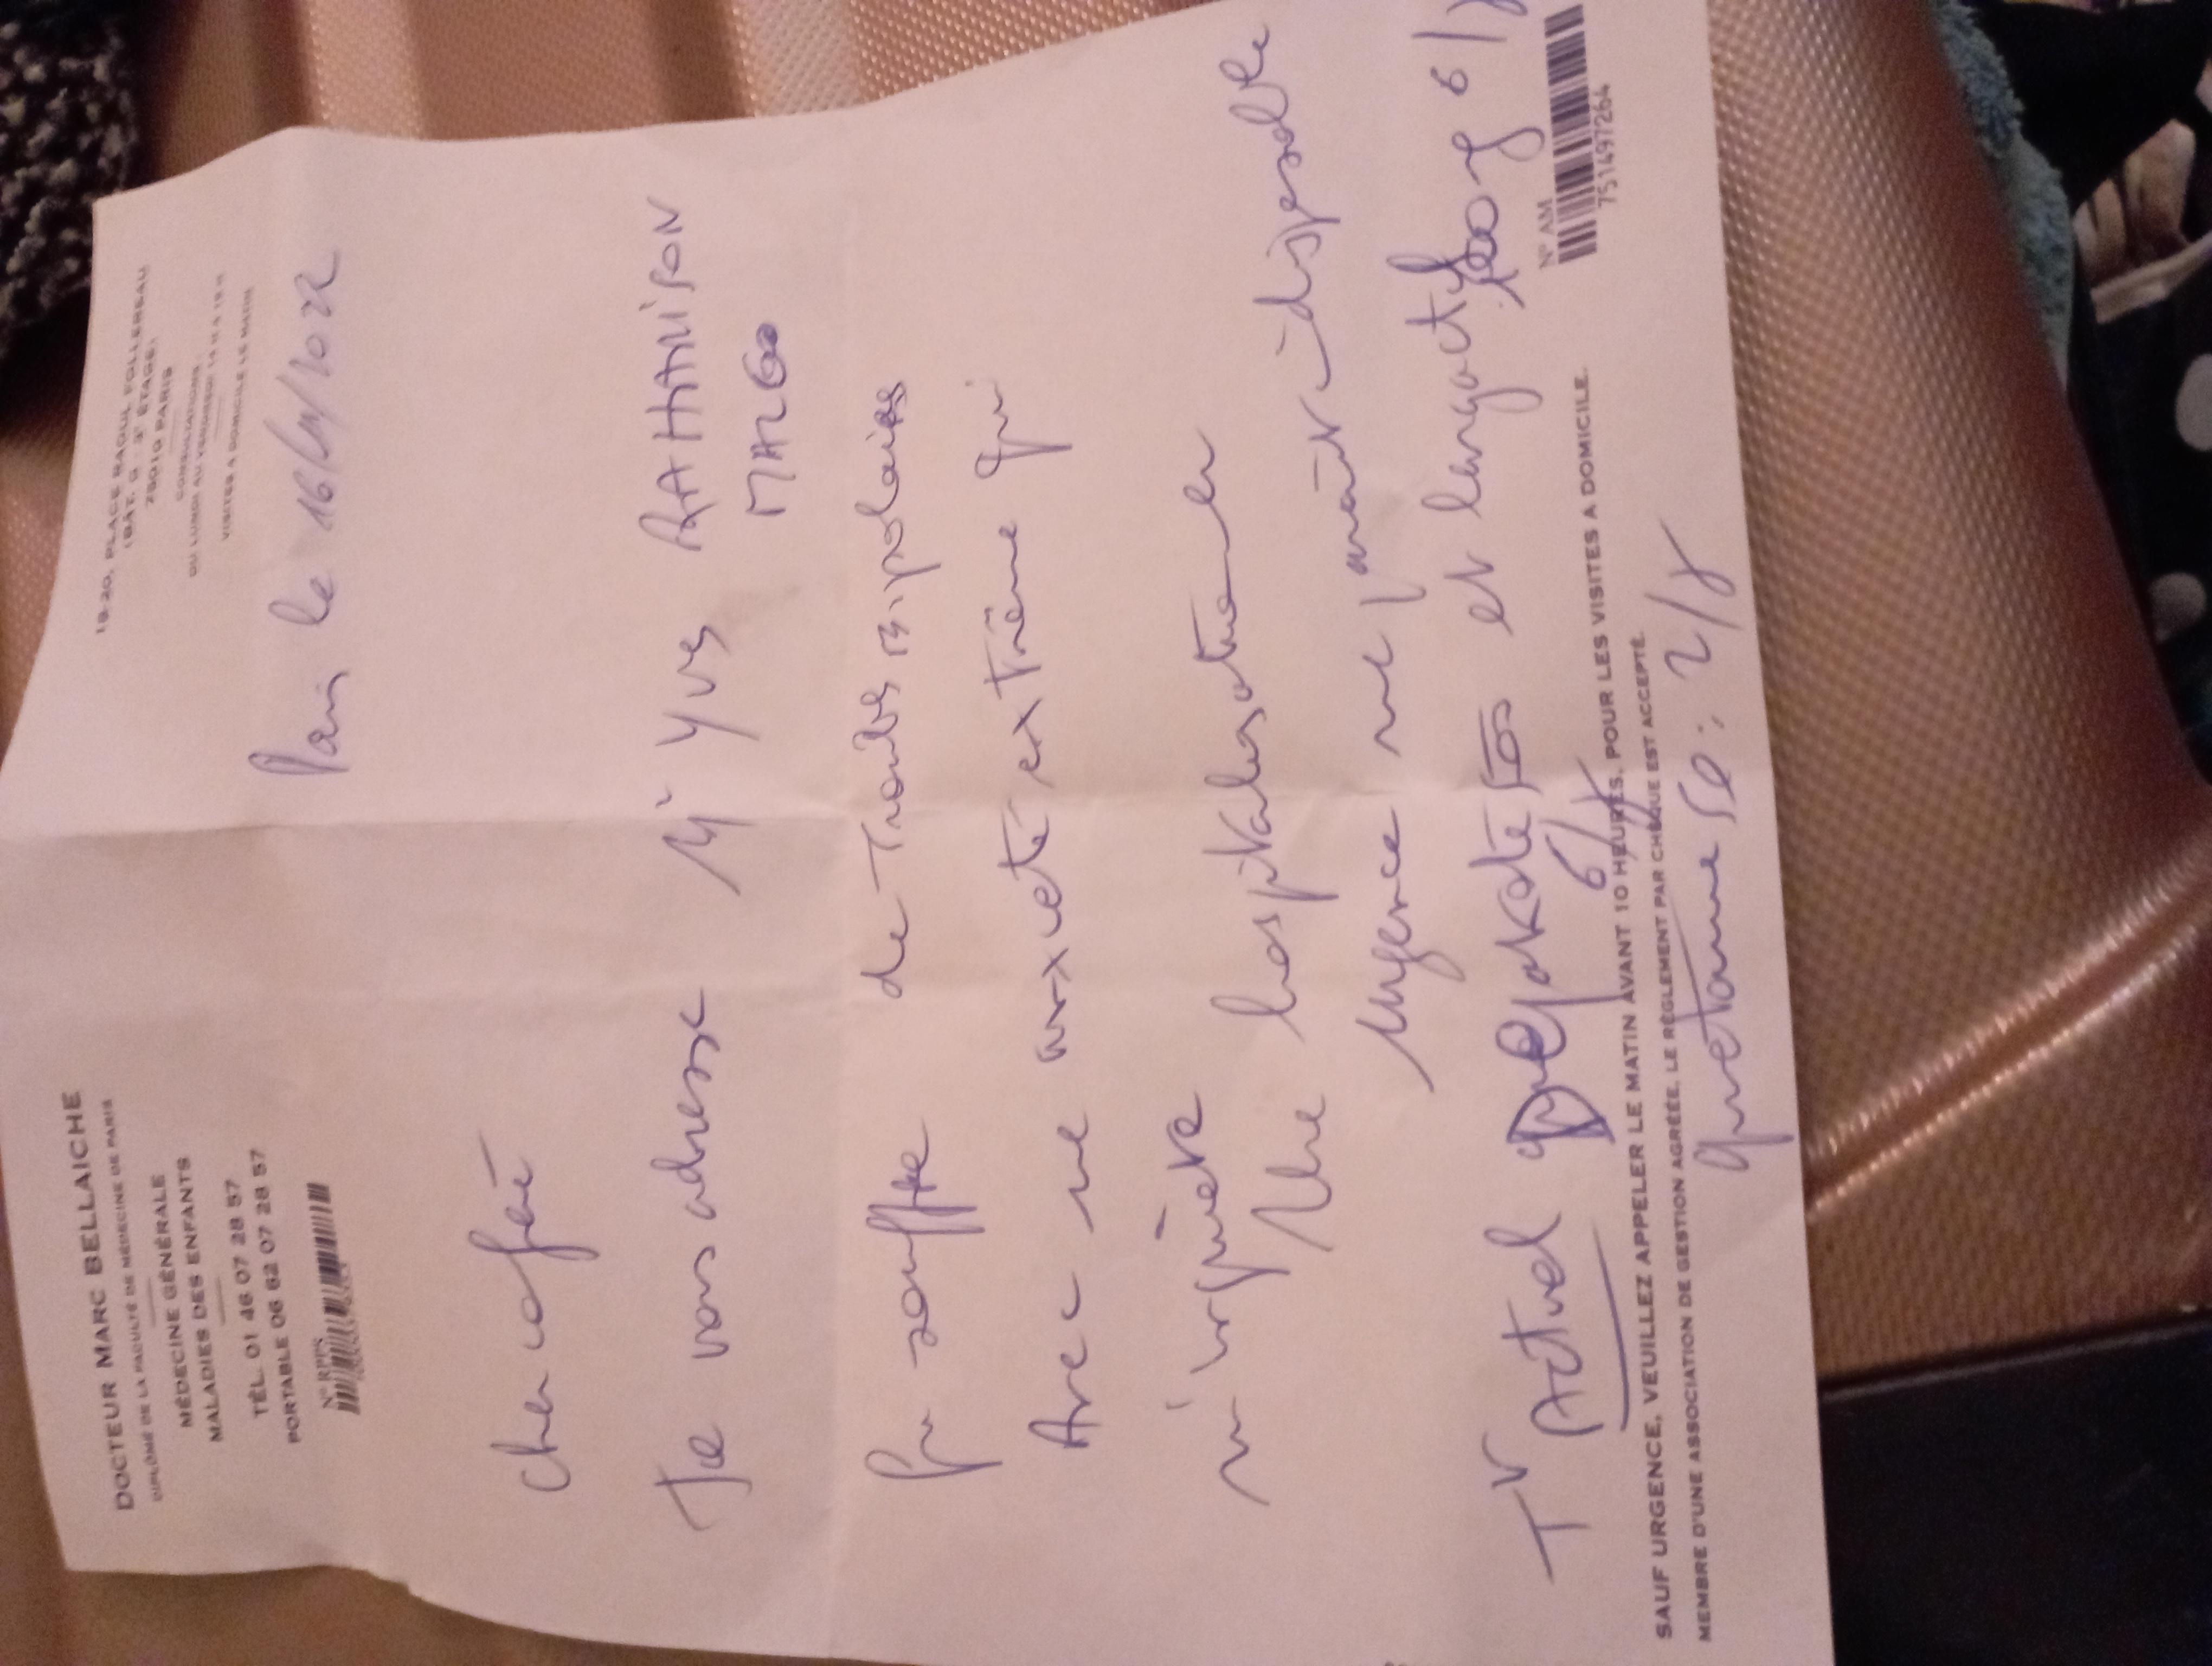 DOCTEUR MARC BELLAICHE
DIPLÔMÉ DE LA FACULTÉ DE MÉDECINE DE PARIS
MÉDECINE GÉNÉRALE
MALADIES DES ENFANTS
TÉL. 01 46 07 28 57
PORTABLE 06 62 07 28 57
N° RPPS
18-20, PLACE RAOUL FOLLEREAU
(BÂT. G - 3e ÉTAGE)
75010 PARIS
CONSULTATIONS
DU LUNDI AU VENDREDI
VISITES A DOMICILE LE MATIN
Paris le 16/11/2022
Cher confrère
Je vous adresse Mr Yves RAHARISON
qui souffre de Troubles Bipolaires
Avec une anxiété extrême qui
m'inquiète
Une hospitalisation en
urgence me paraît indispensable
Tt Actuel et
6/j
N° AM
751497264
SAUF URGENCE, VEUILLEZ APPELER LE MATIN AVANT 10 HEURES, POUR LES VISITES A DOMICILE.
MEMBRE D'UNE ASSOCIATION DE GESTION AGRÉÉE, LE RÈGLEMENT PAR CHÈQUE EST ACCEPTÉ.
: 2/j